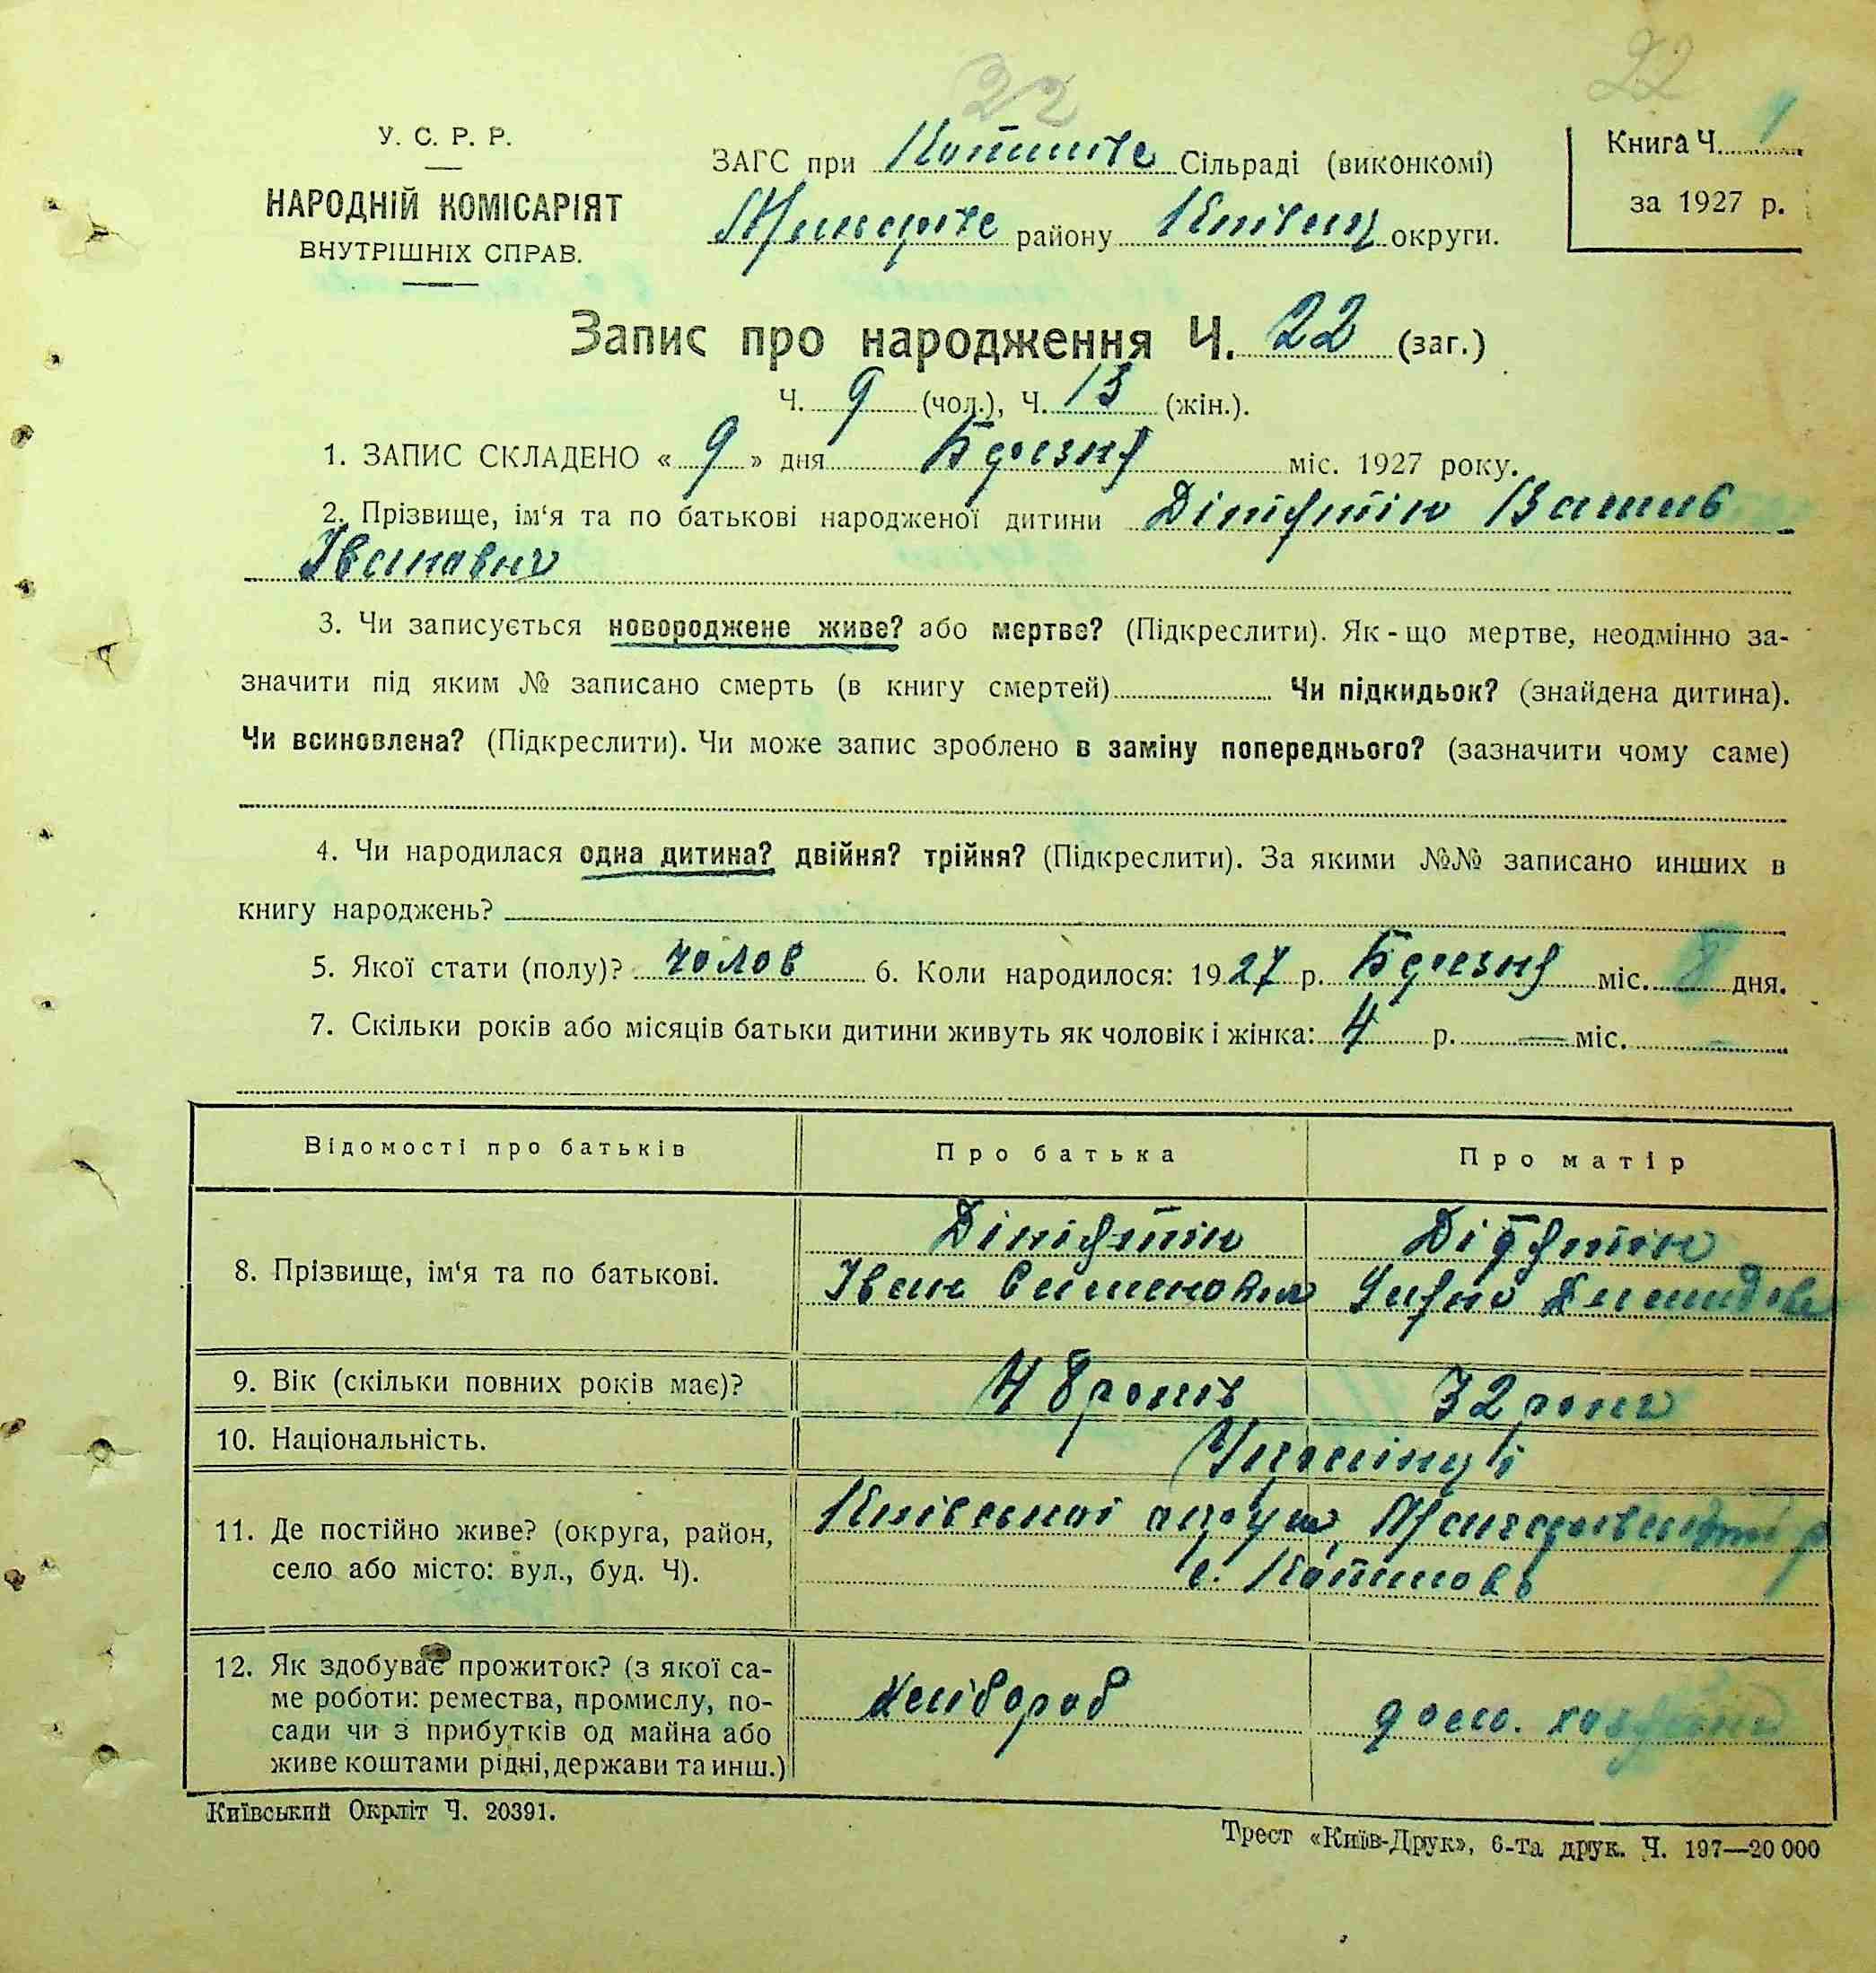 22
22
У. С. Р. Р.
НАРОДНІЙ КОМІСАРІЯТ
ВНУТРІШНІХ СПРАВ.
ЗАГС при Сільраді (виконкомі)
району округи.
Книга Ч. 1
за 1927 р.
Запис про народження Ч. 22 (заг.)
Ч. 9 (чол.), Ч. 13 (жін.).
1. ЗАПИС СКЛАДЕНО « 9 » дня Березня міс. 1927 року.
2. Прізвище, ім‘я та по батькові народженої дитини
Іванович
3. Чи записується новороджене живе? або мертве? (Підкреслити). Як-що мертве, неодмінно за-
значити під яким № записано смерть (в книгу смертей) Чи підкидьок? (знайдена дитина).
Чи всиновлена? (Підкреслити). Чи може запис зроблено в заміну попереднього? (зазначити чому саме)
4. Чи народилася одна дитина? двійня? трійня? (Підкреслити). За якими №№ записано инших в
книгу народжень?
5. Якої стати (полу)? чолов 6. Коли народилося: 1927 р. Березня міс. 8 дня.
7. Скільки років або місяців батьки дитини живуть як чоловік і жінка: 4 р. — міс. —
Відомості про батьків Про батька Про матір
8. Прізвище, ім‘я та по батькові.
Іван Семенович
9. Вік (скільки повних років має)? 48 років 32 роки
10. Національність. Українці
11. Де постійно живе? (округа, район, Київської округи,
село або місто: вул., буд. Ч). с.
12. Як здобуває прожиток? (з якої са-
ме роботи: ремества, промислу, по- хлібороб дом. хазяйка
сади чи з прибутків од майна або
живе коштами рідні, держави та инш.)
Київський Окрліт Ч. 20391.
Трест «Київ-Друк», 6-та друк. Ч. 197—20 000